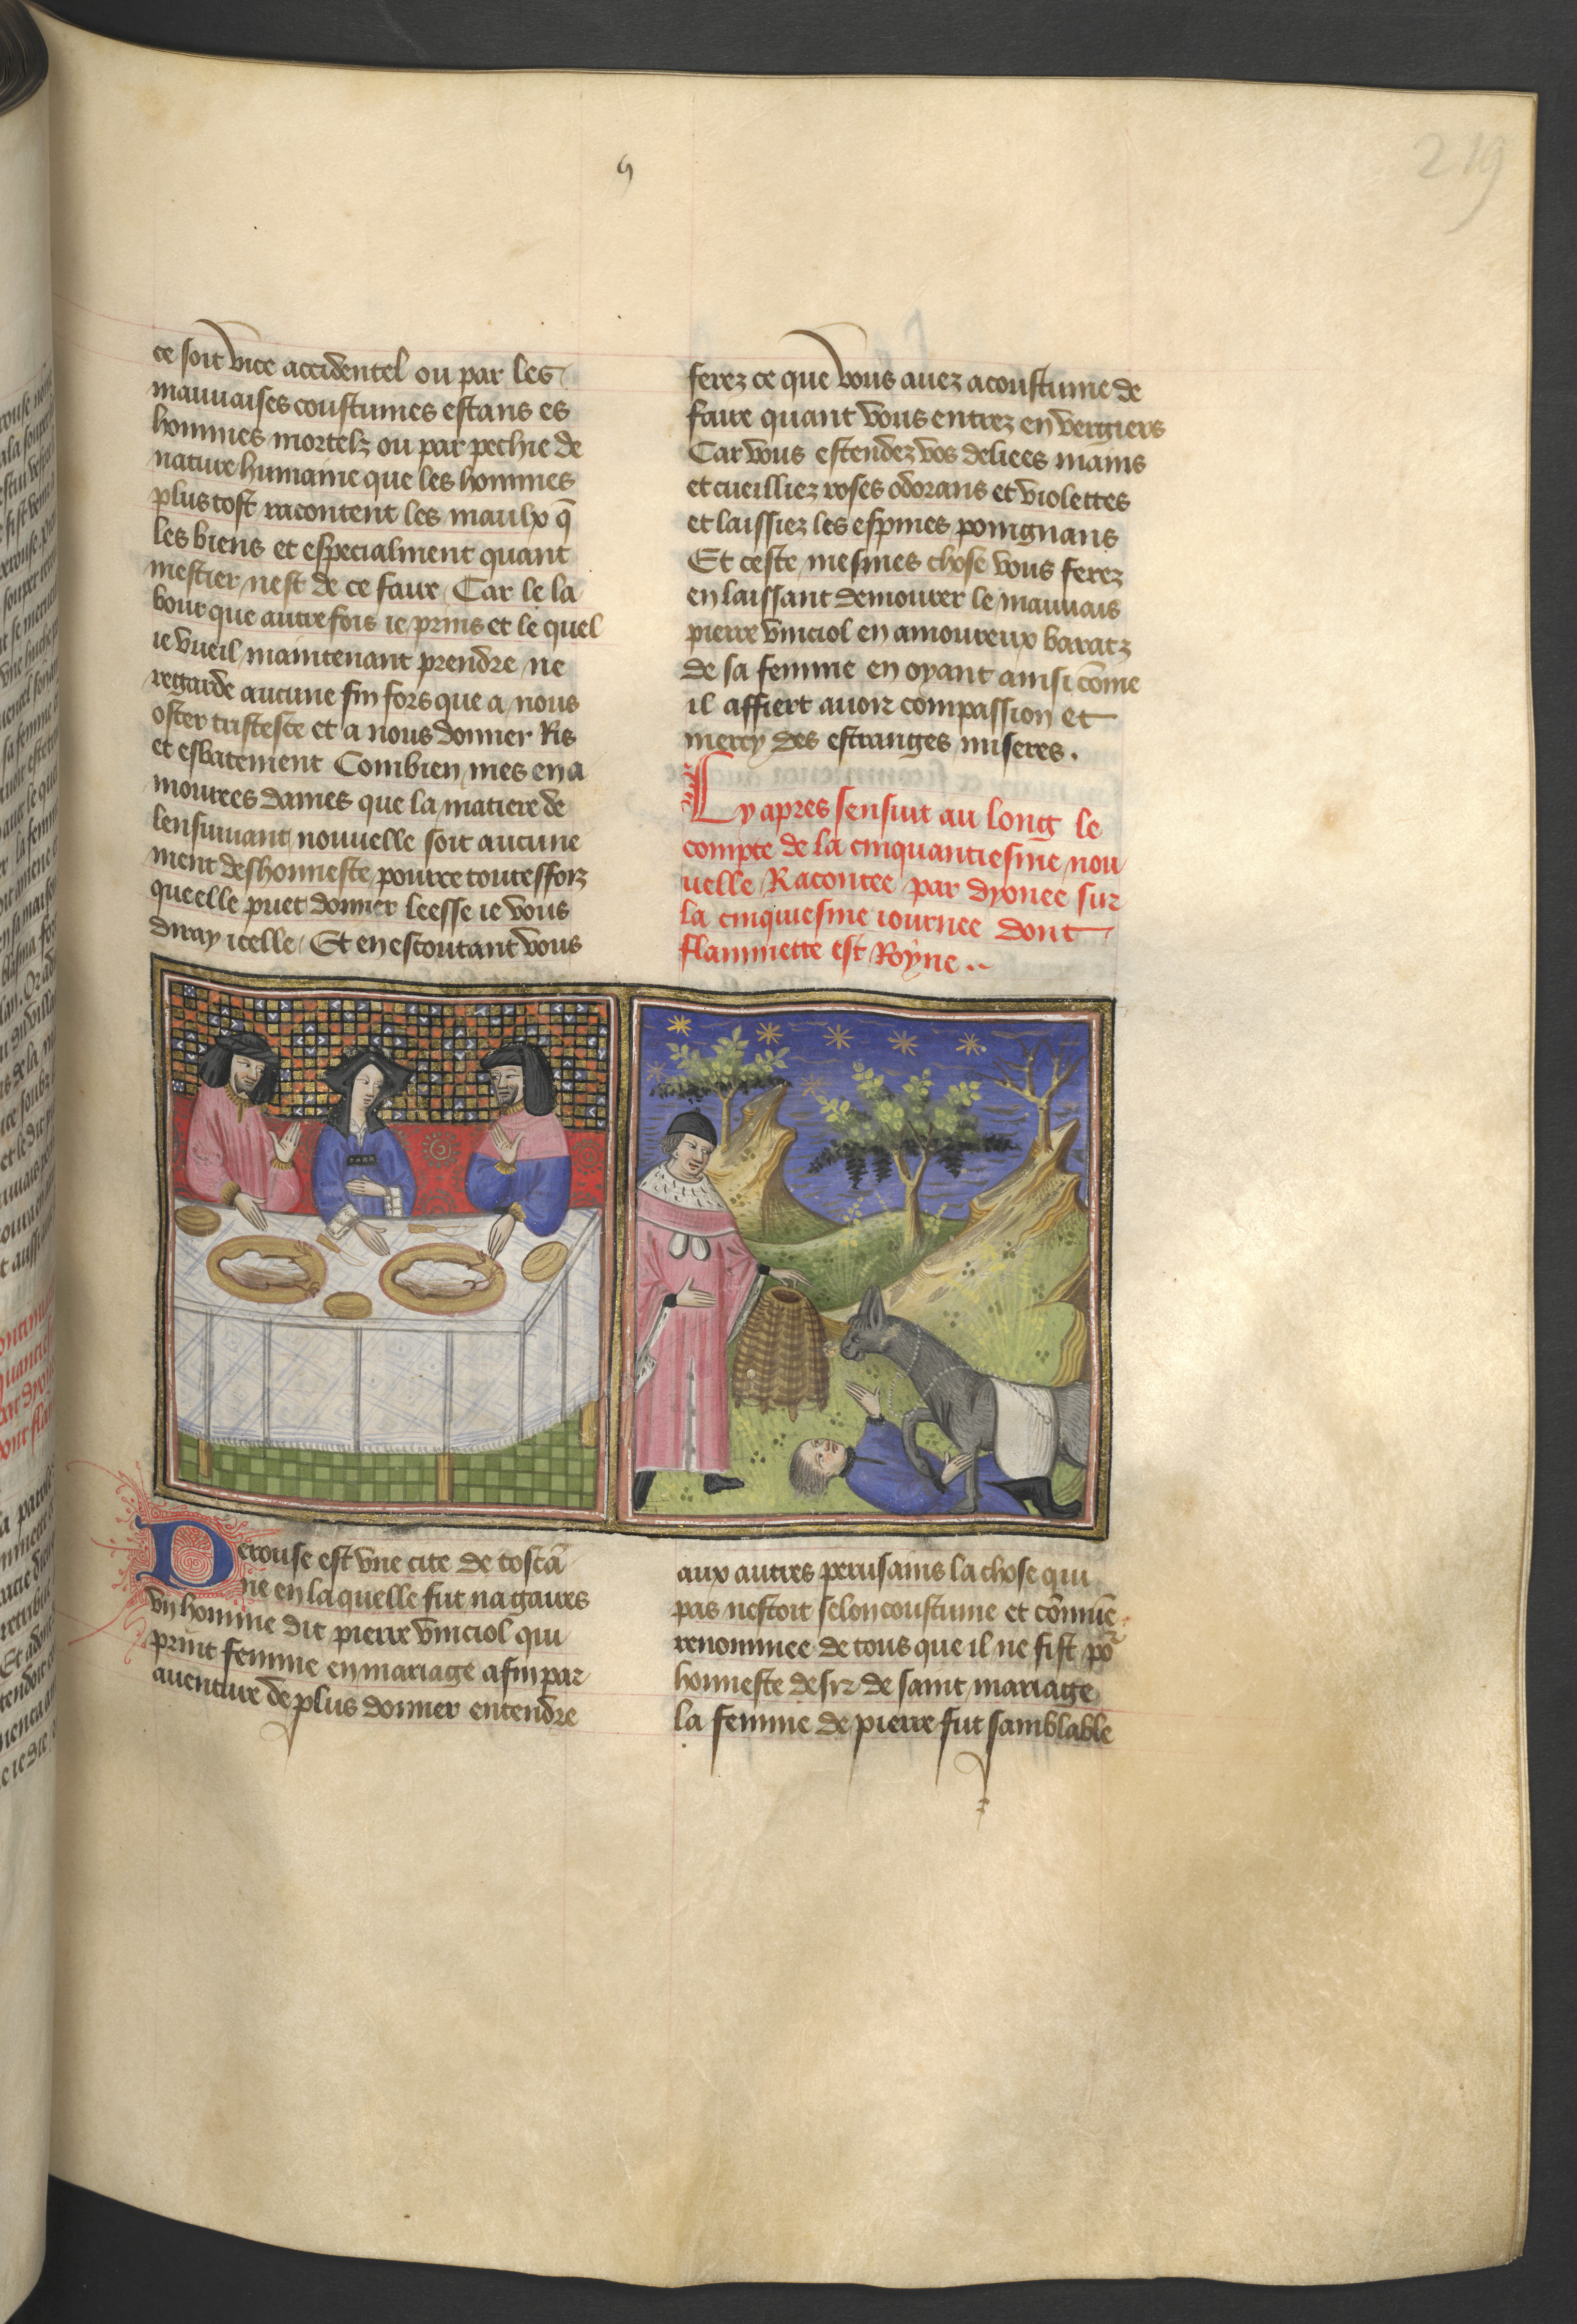 219
ce soit vice accidentel ou par les
mauuaises coustumes estans es
hommes mortelz ou par pechie de
nature humaine que les hommes
plus tost racontent les maulx q̄
les biens et especialment quant
mestier nest de ce faire Car le la
bour que autrefois ie prins et le quel
ie vueil maintenant prendre ne
regarde aucune fin fors que a nous
oster tristesce et a nous donner Ris
et esbatement Combien mes ena
mourees dames que la matiere de
lensuiuant nouuelle soit aucune
ment deshonneste pource toutesfoiz
que elle puet donner leesse ie vous
diray icelle Et en escoutant vous
ferez ce que vous auez acoustume de
faire quant vous entrez en vergiers
Car vous estendez vos deliees mains
et cueilliez roses odorans et violettes
et laissiez les espines poingnans
Et ceste mesmes chose vous ferez
en laissant demourer le mauuais
pierre vinciol en amoureux baratz
de sa femme en oyant ainsi cōme
il affiert auoir compassion et
mercy des estranges miseres.
Cy apres sensuit au long le
compte de la cinquantiesme nou
uelle Racontee par dyonee sur
la cinquiesme iournee dont
flammette est Royne..
Perouse est vne cite de toscā
ne en la quelle fut nagaires
vn homme dit pierre vinciol qui
print femme en mariage afin par
auenture de plus donner entendre
aux autres perusains la chose qui
pas nestoit selon coustume et cōmūe
renommee de tous que il ne fist po²
honneste desir de saint mariage
la femme de pierre fut samblable